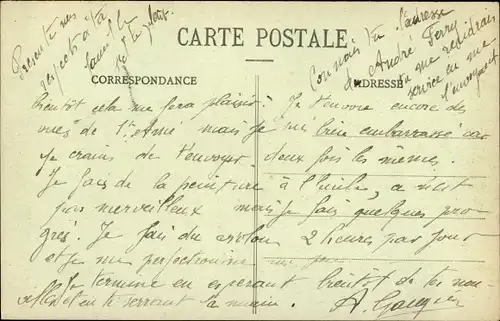 Présente mes
respects à ta
famille
CARTE POSTALE
Connais-tu l'adresse
de André Ferry
tu me rendrais
service en me
l'envoyant
CORRESPONDANCE
ADRESSE
bientôt cela me fera plaisir. Je t'envoie encore des
vues de Ste Anne mais je suis bien embarrassé car
je crains de t'envoyer deux fois les mêmes.
Je fais de la peinture à l'huile, ce n'est
pas merveilleux mais je fais quelques pro
grès. Je fais du violon 2 heures par jour
et je me perfectionne un peu.
Je termine en espérant bientôt de tes nou-
velles et en te serrant la main.